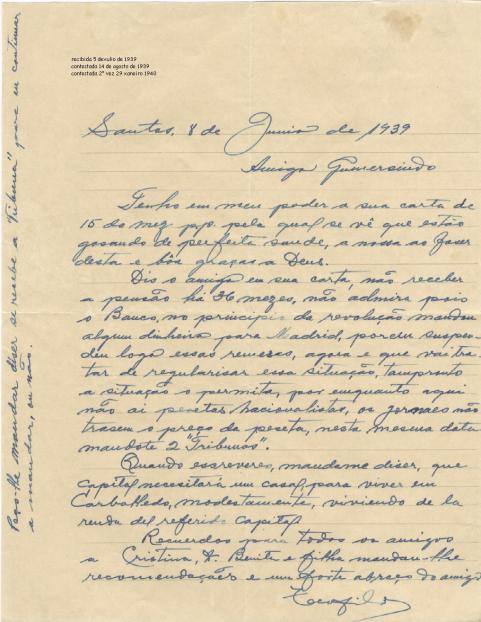 recibida 5 de xulio de 1939
contestada 14 de agosto de 1939
contestada 2ª vez 29 xaneiro 1940
Santos, 8 de Junio de 1939
Amigo Gumersindo
Tenho em meu poder a sua carta de
15 do mez p.p. pela qual se vê que estão
gosando de perfeita saude, a nossa ao fazer
desta e bôa graças a Deus.
Dis o amigo em sua carta, não receber
a pensão há 36 mezes, não admira pois
o Banco, no principio da revolução mandou
algum dinheiro para Madrid, porem suspen-
deu logo essas remesas, agora e que vai tra-
tar de regularisar essa situação, tampronto
a situação o permita, por emquanto aqui
não ai pesetas nacionalistas, os jornaes não
trasem o preço da peseta, nesta mesma data
mandote 2 "Tribunas".
Quando escreveres, mandame diser, que
capital necesitará um casal, para viver em
Carballedo, modestamente, viviendo de la
renda del referido Capital
Recuerdos para todos os amigos
a Cristina, A. Benite e filha mandan-lhe
recomendações e um forte abraço do amigo
Teofilo
Peço-lhe mandar diser se recebe a "Tribuna" para eu continuar
a mandar, ou não.